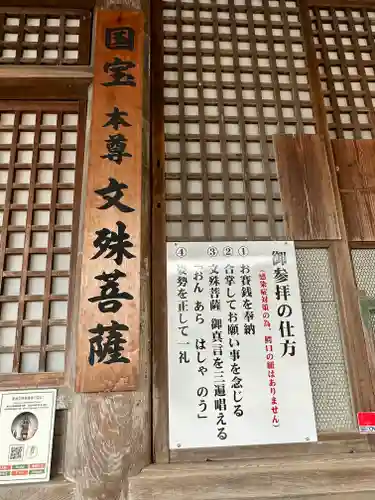 国宝 本尊 文殊菩薩
御参拝の仕方
（感染症対策の為、鰐口の願はありません）
①お賽銭を奉納
②合掌してお願い事を念じる
③文殊菩薩 御真言を三遍唱える
「おん あら はしゃ のう」
④姿勢を正して一礼